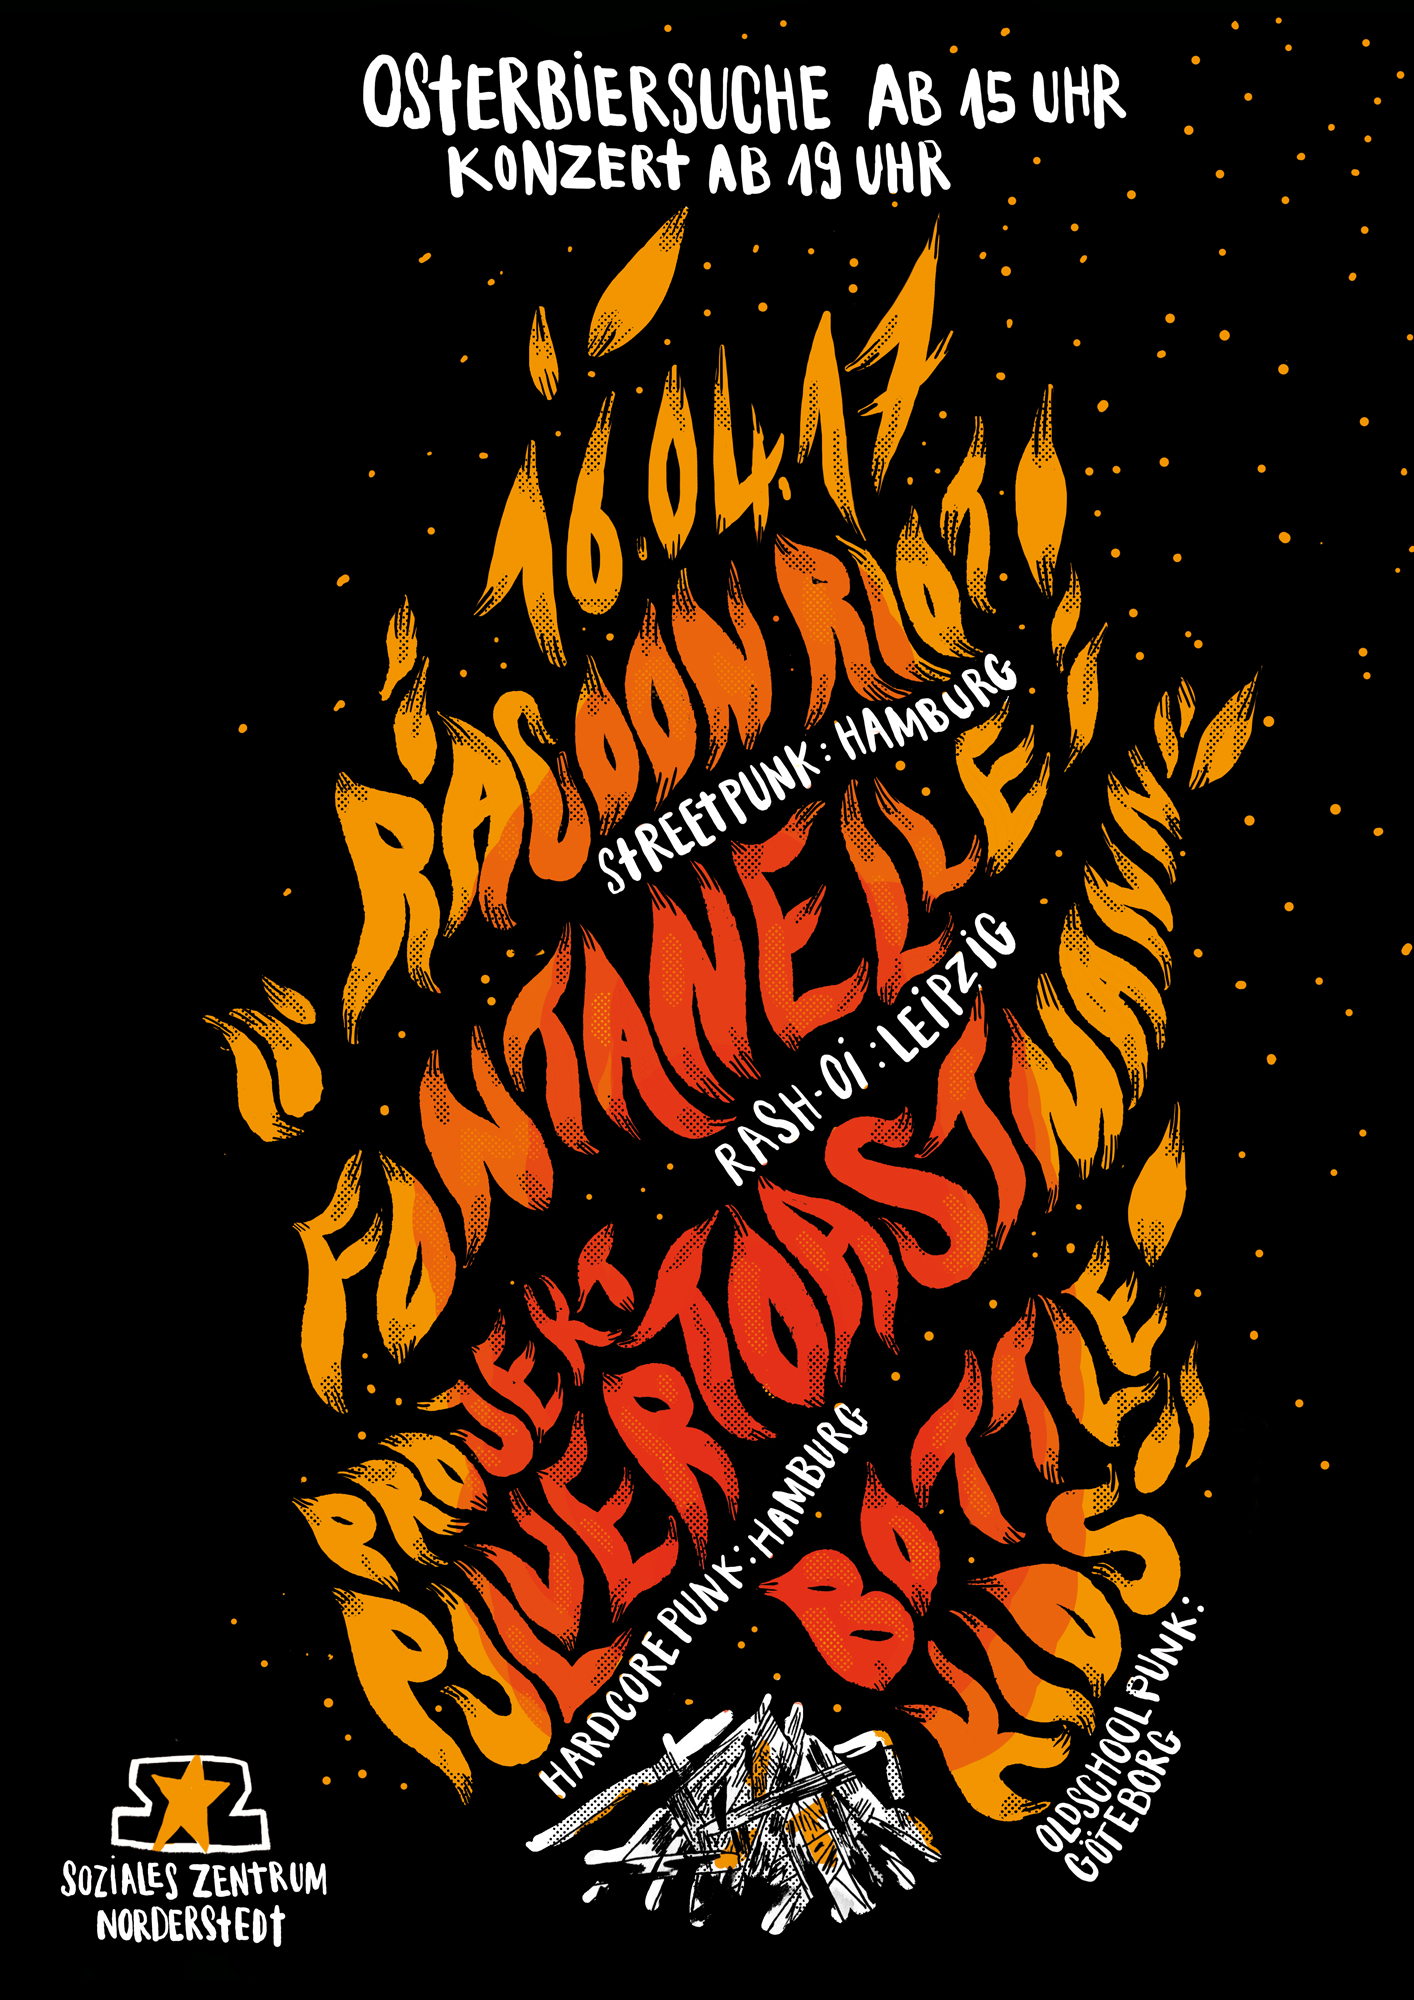 OSTERBIERSUCHE AB 15 UHR
KONZERT AB 19 UHR
16.04.17
RASOON RIOT
STREETPUNK: HAMBURG
FONTANELLE
RASH-OI: LEIPZIG
PROJEKT
PULVERTOASTMANN
HARDCOREPUNK: HAMBURG
BOTTLE
KIDS
OLDSCHOOLPUNK:
GÖTEBORG
SOZIALES ZENTRUM
NORDERSTEDT